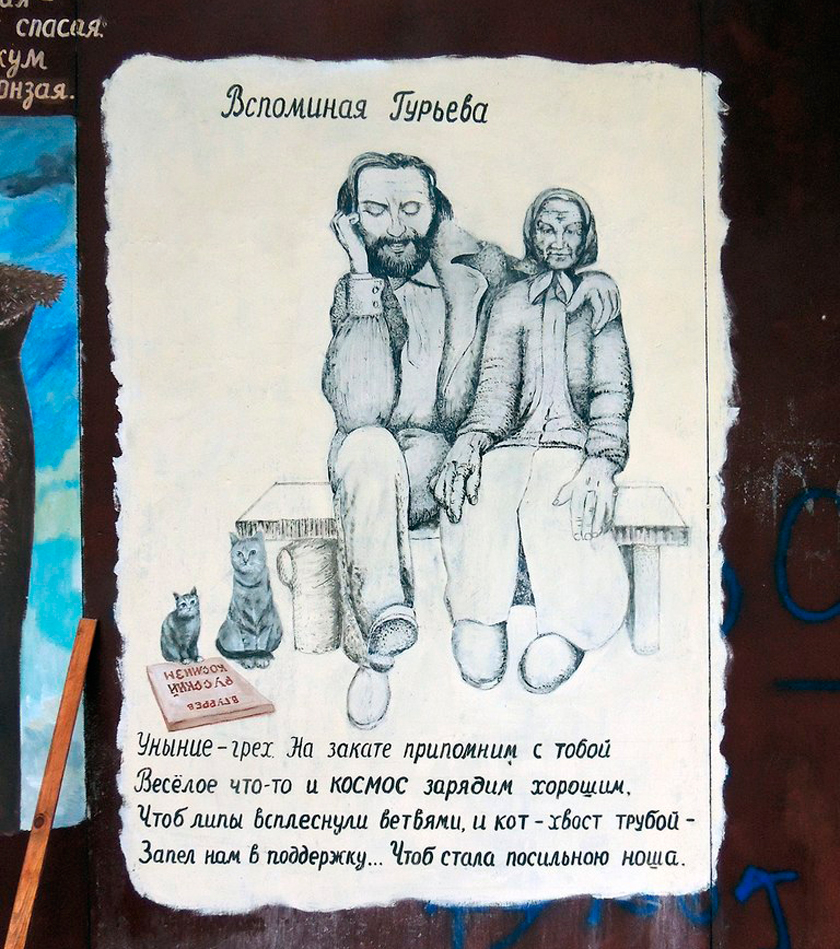 спасая.
кум
онзая.
Вспоминая Гурьева
В.ГУРЬЕВ
РУССКИЙ
КОСМИЗМ
Уныние - грех. На закате припомним с тобой
Весёлое что-то и КОСМОС зарядим хорошим,
Чтоб липы всплеснули ветвями, и кот - хвост трубой -
Запел нам в поддержку... Чтоб стала посильною ноша.